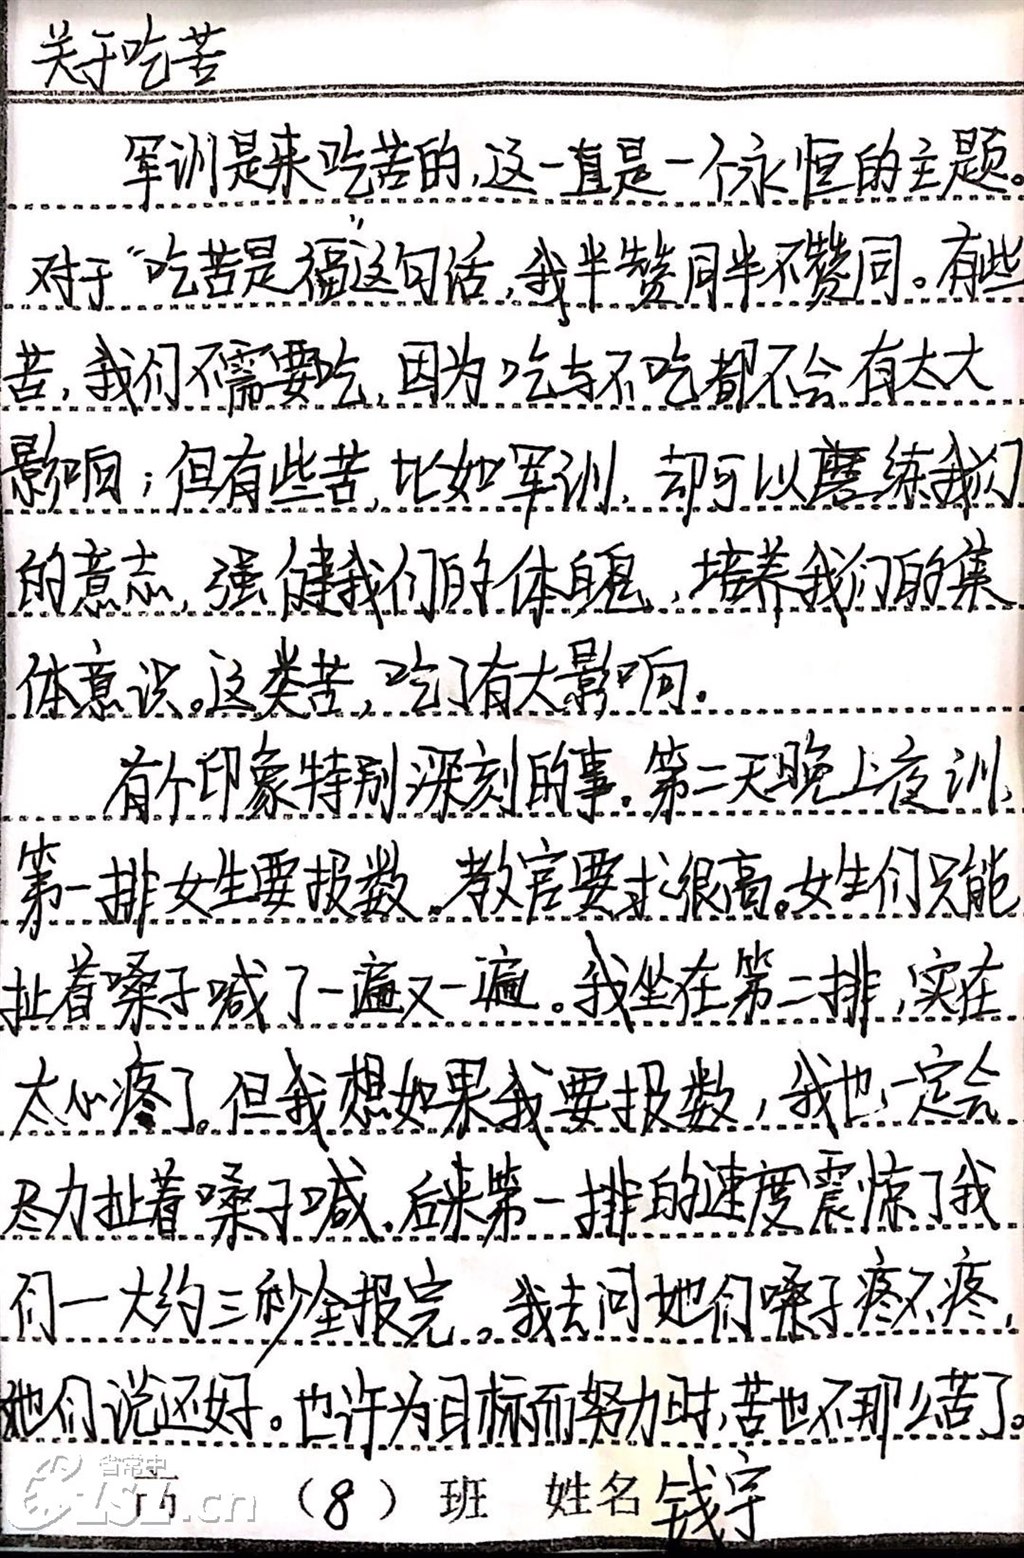 关于吃苦
军训是来吃苦的，这一直是一个永恒的主题。
对于“吃苦是福”这句话，我半赞同半不赞同。有些
苦，我们不需要吃，因为吃与不吃都不会有太大
影响；但有些苦，比如军训，却可以磨练我们
的意志，强健我们的体魄，培养我们的集
体意识。这类苦，吃了有大影响。
有个印象特别深刻的事。第二天晚上夜训，
第一排女生要报数。教官要求很高。女生们只能
扯着嗓子喊了一遍又一遍。我坐在第二排，实在
太心疼了。但我想如果我要报数，我也一定会
尽力扯着嗓子喊。后来第一排的速度震惊了我
们一大约三秒全报完。我去问她们嗓子疼不疼，
她们说还好。也许为目标而努力时，苦也不那么苦了。
（8）班 姓名 钱宇
省常中
.cn